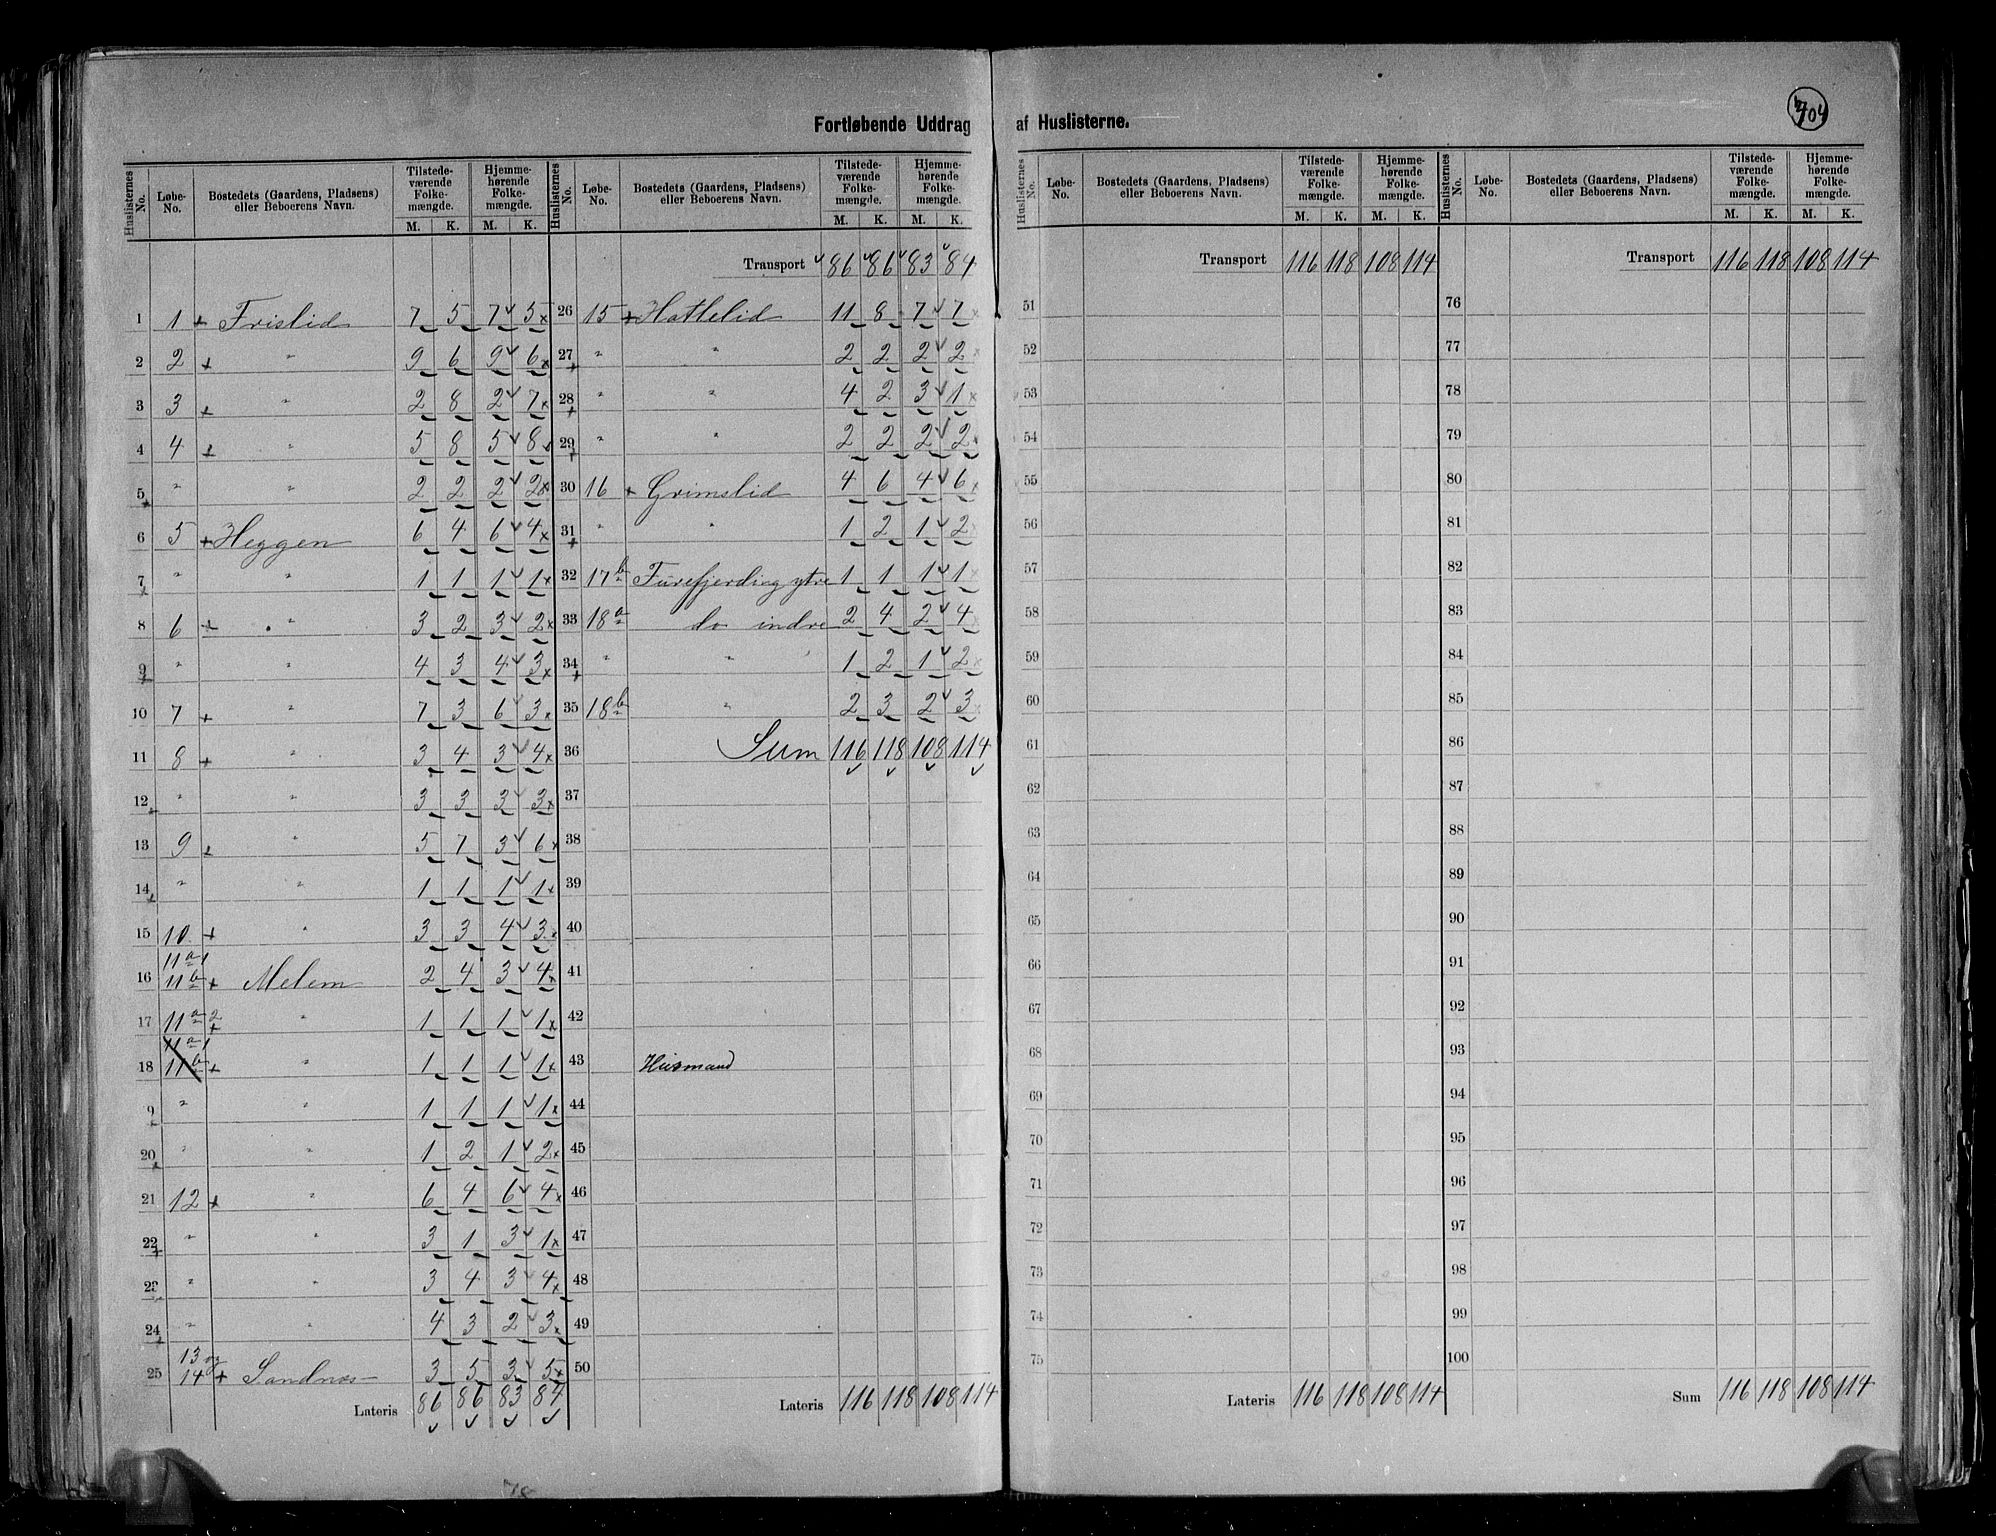 704
Fortløbende Uddrag af Huslisterne.
Huslisternes No. | Løbe-No. | Bostedets (Gaardens, Pladsens) eller Beboerens Navn. | Tilstedeværende Folkemængde. M. K. | Hjemmehørende Folkemængde. M. K.
1 | 1 + | Frislid | 7 | 5 | 7 | 5
2 | 2 + | " | 9 | 6 | 9 | 6
3 | 3 + | " | 2 | 8 | 2 | 7
4 | 4 + | " | 5 | 8 | 5 | 8
5 | " | " | 2 | 2 | 2 | 2
6 | 5 + | Heggen | 6 | 4 | 6 | 4
7 | " | " | 1 | 1 | 1 | 1
8 | 6 + | " | 3 | 2 | 3 | 2
9 | " | " | 4 | 3 | 4 | 3
10 | 7 + | " | 7 | 3 | 6 | 3
11 | 8 + | " | 3 | 4 | 3 | 4
12 | " | " | 3 | 3 | 3 | 3
13 | 9 + | " | 5 | 7 | 3 | 6
14 | " | " | 1 | 1 | 1 | 1
15 | 10 + | " | 3 | 3 | 4 | 3
16 | 11a1 11b + | Melem | 2 | 4 | 3 | 4
17 | 11a2 + | " | 1 | 1 | 1 | 1
18 | 11a1 11b + | " | 1 | 1 | 1 | 1
9 | " | " | 1 | 1 | 1 | 1
20 | " | " | 1 | 2 | 1 | 2
21 | 12 + | " | 6 | 4 | 6 | 4
22 | " | " | 3 | 1 | 3 | 1
23 | " | " | 3 | 4 | 3 | 4
24 | " | " | 4 | 3 | 2 | 3
25 | 13 og 14 + | Sandnes | 3 | 5 | 3 | 5
Lateris | 86 | 86 | 83 | 84
Huslisternes No. | Løbe-No. | Bostedets (Gaardens, Pladsens) eller Beboerens Navn. | Tilstedeværende Folkemængde. M. K. | Hjemmehørende Folkemængde. M. K.
Transport | 86 | 86 | 83 | 84
26 | 15 + | Hattelid | 11 | 8 | 7 | 7
27 | " | " | 2 | 2 | 2 | 2
28 | " | " | 4 | 2 | 3 | 1
29 | " | " | 2 | 2 | 2 | 2
30 | 16 + | Grimslid | 4 | 6 | 4 | 6
31 | " | " | 1 | 2 | 1 | 2
32 | 17b | Furefjerding ytre | 1 | 1 | 1 | 1
33 | 18a | do indre | 2 | 4 | 2 | 4
34 | " | " | 1 | 2 | 1 | 2
35 | 18b | " | 2 | 3 | 2 | 3
36 | Sum | 116 | 118 | 108 | 114
37
38
39
40
41
42
43 | Husmand
44
45
46
47
48
49
50
Lateris | 116 | 118 | 108 | 114
Huslisternes No. | Løbe-No. | Bostedets (Gaardens, Pladsens) eller Beboerens Navn. | Tilstedeværende Folkemængde. M. K. | Hjemmehørende Folkemængde. M. K.
Transport | 116 | 118 | 108 | 114
51
52
53
54
55
56
57
58
59
60
61
62
63
64
65
66
67
68
69
70
71
72
73
74
75
Lateris | 116 | 118 | 108 | 114
Huslisternes No. | Løbe-No. | Bostedets (Gaardens, Pladsens) eller Beboerens Navn. | Tilstedeværende Folkemængde. M. K. | Hjemmehørende Folkemængde. M. K.
Transport | 116 | 118 | 108 | 114
76
77
78
79
80
81
82
83
84
85
86
87
88
89
90
91
92
93
94
95
96
97
98
99
100
Sum | 116 | 118 | 108 | 114